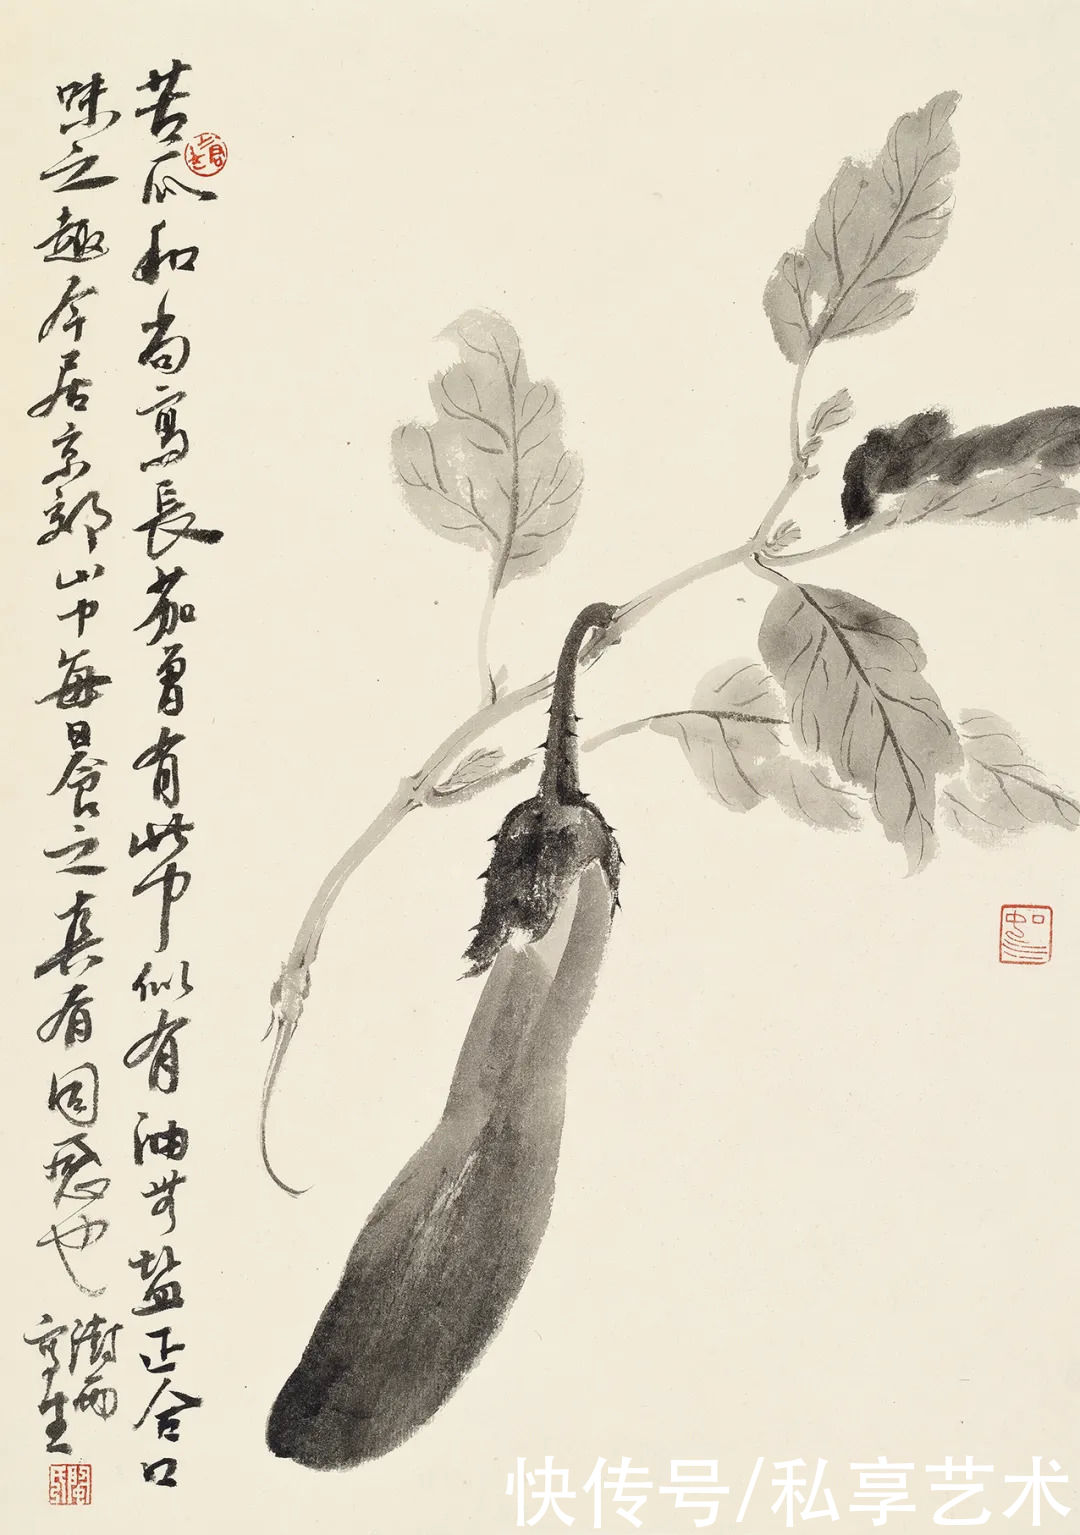 苦瓜和尚寫長茄曾有此中似有油無盐正合口
味之趣今居京郊山中每日食之真有同感也
澍雨
寫生
快传号/私享艺术